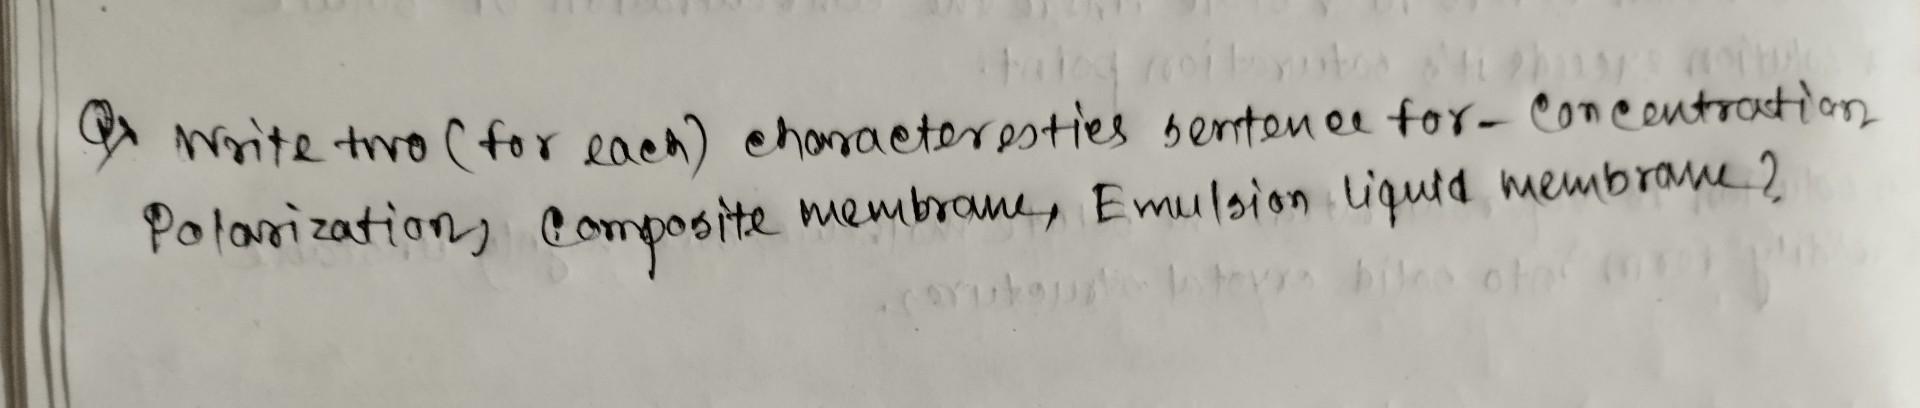 Q> Write two (for each) characterestics sentence for- Concentration
Polarization, Composite membrane, Emulsion liquid membrane?